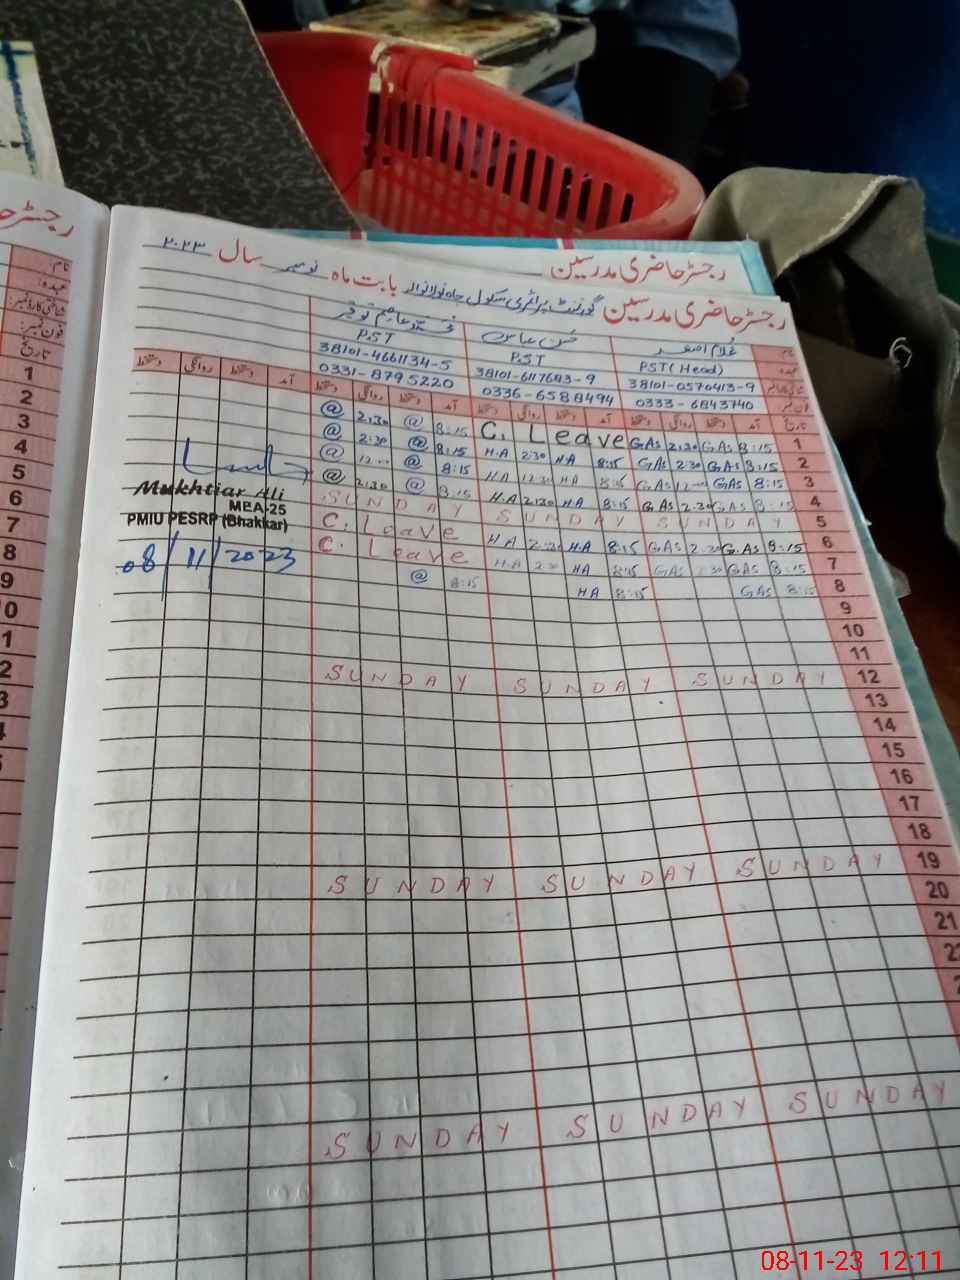 رجسٹر حاضری مدرسین
رجسٹر حاضری مدرسین گورنمنٹ پرائمری سکول چاہ نولانوالہ بابت ماہ نومبر سال ۲۰۲۳
نام غلام اصغر حسن عباس
عہدہ PST(Head) PST PST
38101-0570413-9 38101-6117683-9 38101-4661134-5
فون نمبر 0333-6843740 0336-6588494 0331-8795220
تاریخ آمد دستخط روانگی دستخط آمد دستخط روانگی دستخط آمد دستخط روانگی دستخط آمد دستخط روانگی دستخط
1 8:15 GAS 2:30 GAS C. Leave 8:15 @ 2:30 @
2 8:15 GAS 2:30 GAS 8:15 HA 2:30 HA 8:15 @ 2:30 @
3 8:15 GAS 12:00 GAS 8:15 HA 12:30 HA 8:15 @ 12:00 @
4 8:15 GAS 2:30 GAS 8:15 HA 2:30 HA 8:15 @ 2:30 @
5 SUNDAY SUNDAY SUNDAY
6 8:15 G.AS 2:30 GAS 8:15 HA 2:30 HA C. Leave
7 8:15 GAS 2:30 GAS 8:15 HA 2:30 HA C. Leave
8 8:15 GAS 8:15 HA 8:15 @
9
10
11
12 SUNDAY SUNDAY SUNDAY
13
14
15
16
17
18
19 SUNDAY SUNDAY SUNDAY
20
21
SUNDAY SUNDAY SUNDAY
Mukhtiar Ali
MEA-25
PMIU PESRP (Bhakkar)
08/11/2023
نام:
عہدہ:
شناختی کارڈ نمبر:
فون نمبر:
تاریخ
1
2
3
4
5
6
7
8
9
08-11-23 12:11